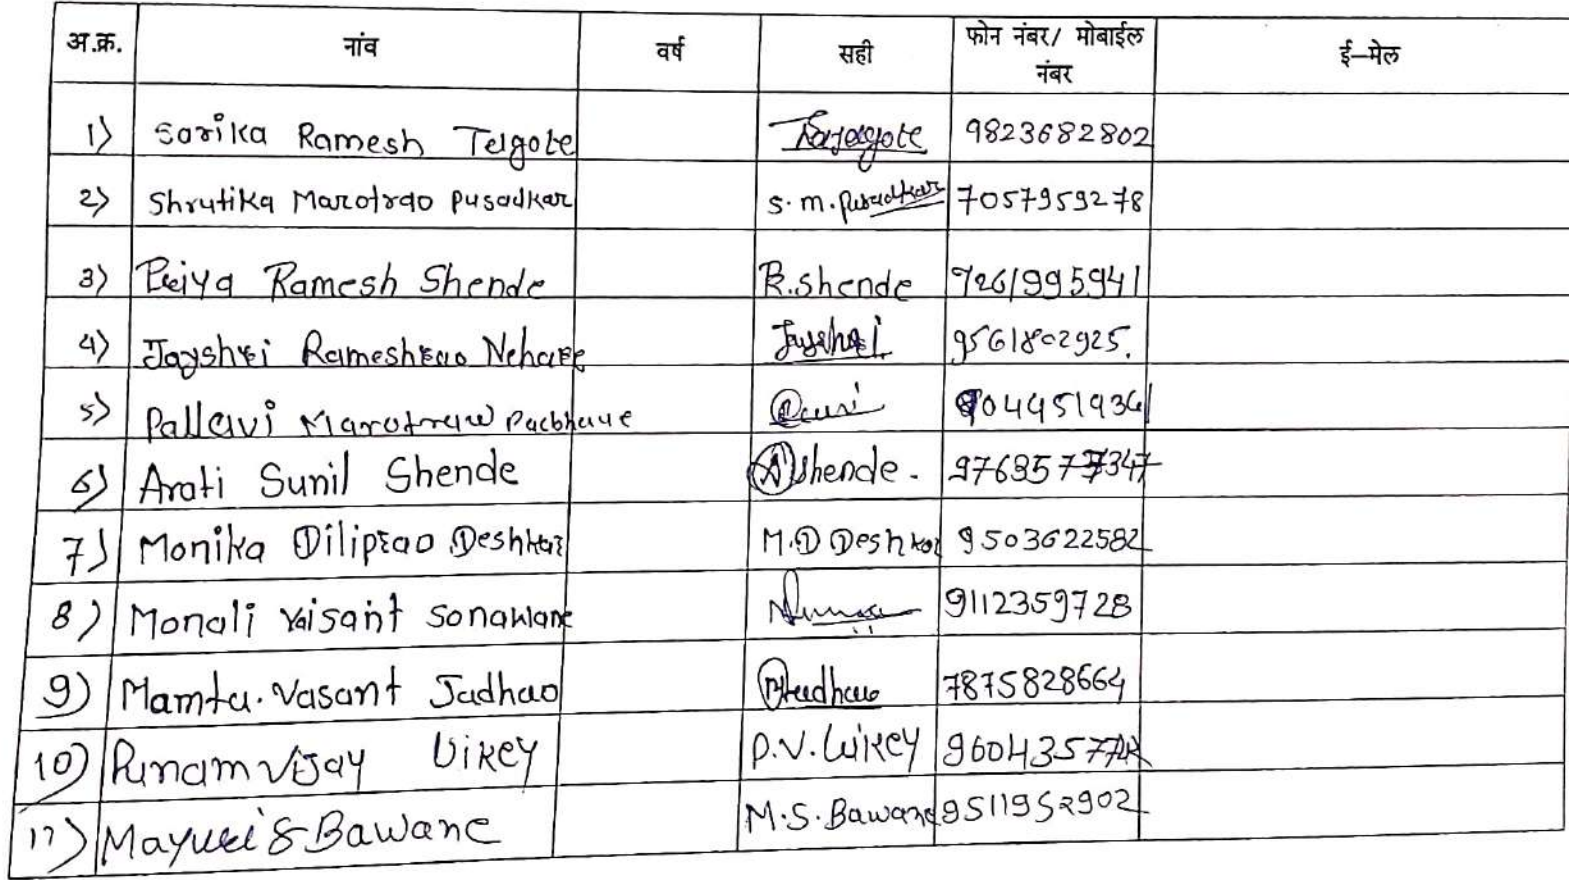 अ.क्र. नांव वर्ष सही फोन नंबर/ मोबाईल नंबर ई–मेल
1) Sarika Ramesh Telgote 9823682802
2) Shrutika Marotrao Pusadkar S. m. Pusadkar 7057959278
3) Priya Ramesh Shende R.Shende 7261995941
4) Jayshri Rameshrao Nehare Jayshri 9561802925.
5) Pallavi Marotraw Pacbhaue
6) Arati Sunil Shende A Shende.
7) Monika Diliprao Deshkar M.D Deshkar 9503622582
8) Monali Vaisant Sonawane 9112359728
9) Mamta. Vasant Jadhao 7875828664
10) Punam Vijay Uikey P.V. Uikey
11) Mayuri S Bawane M.S. Bawane 9511952902